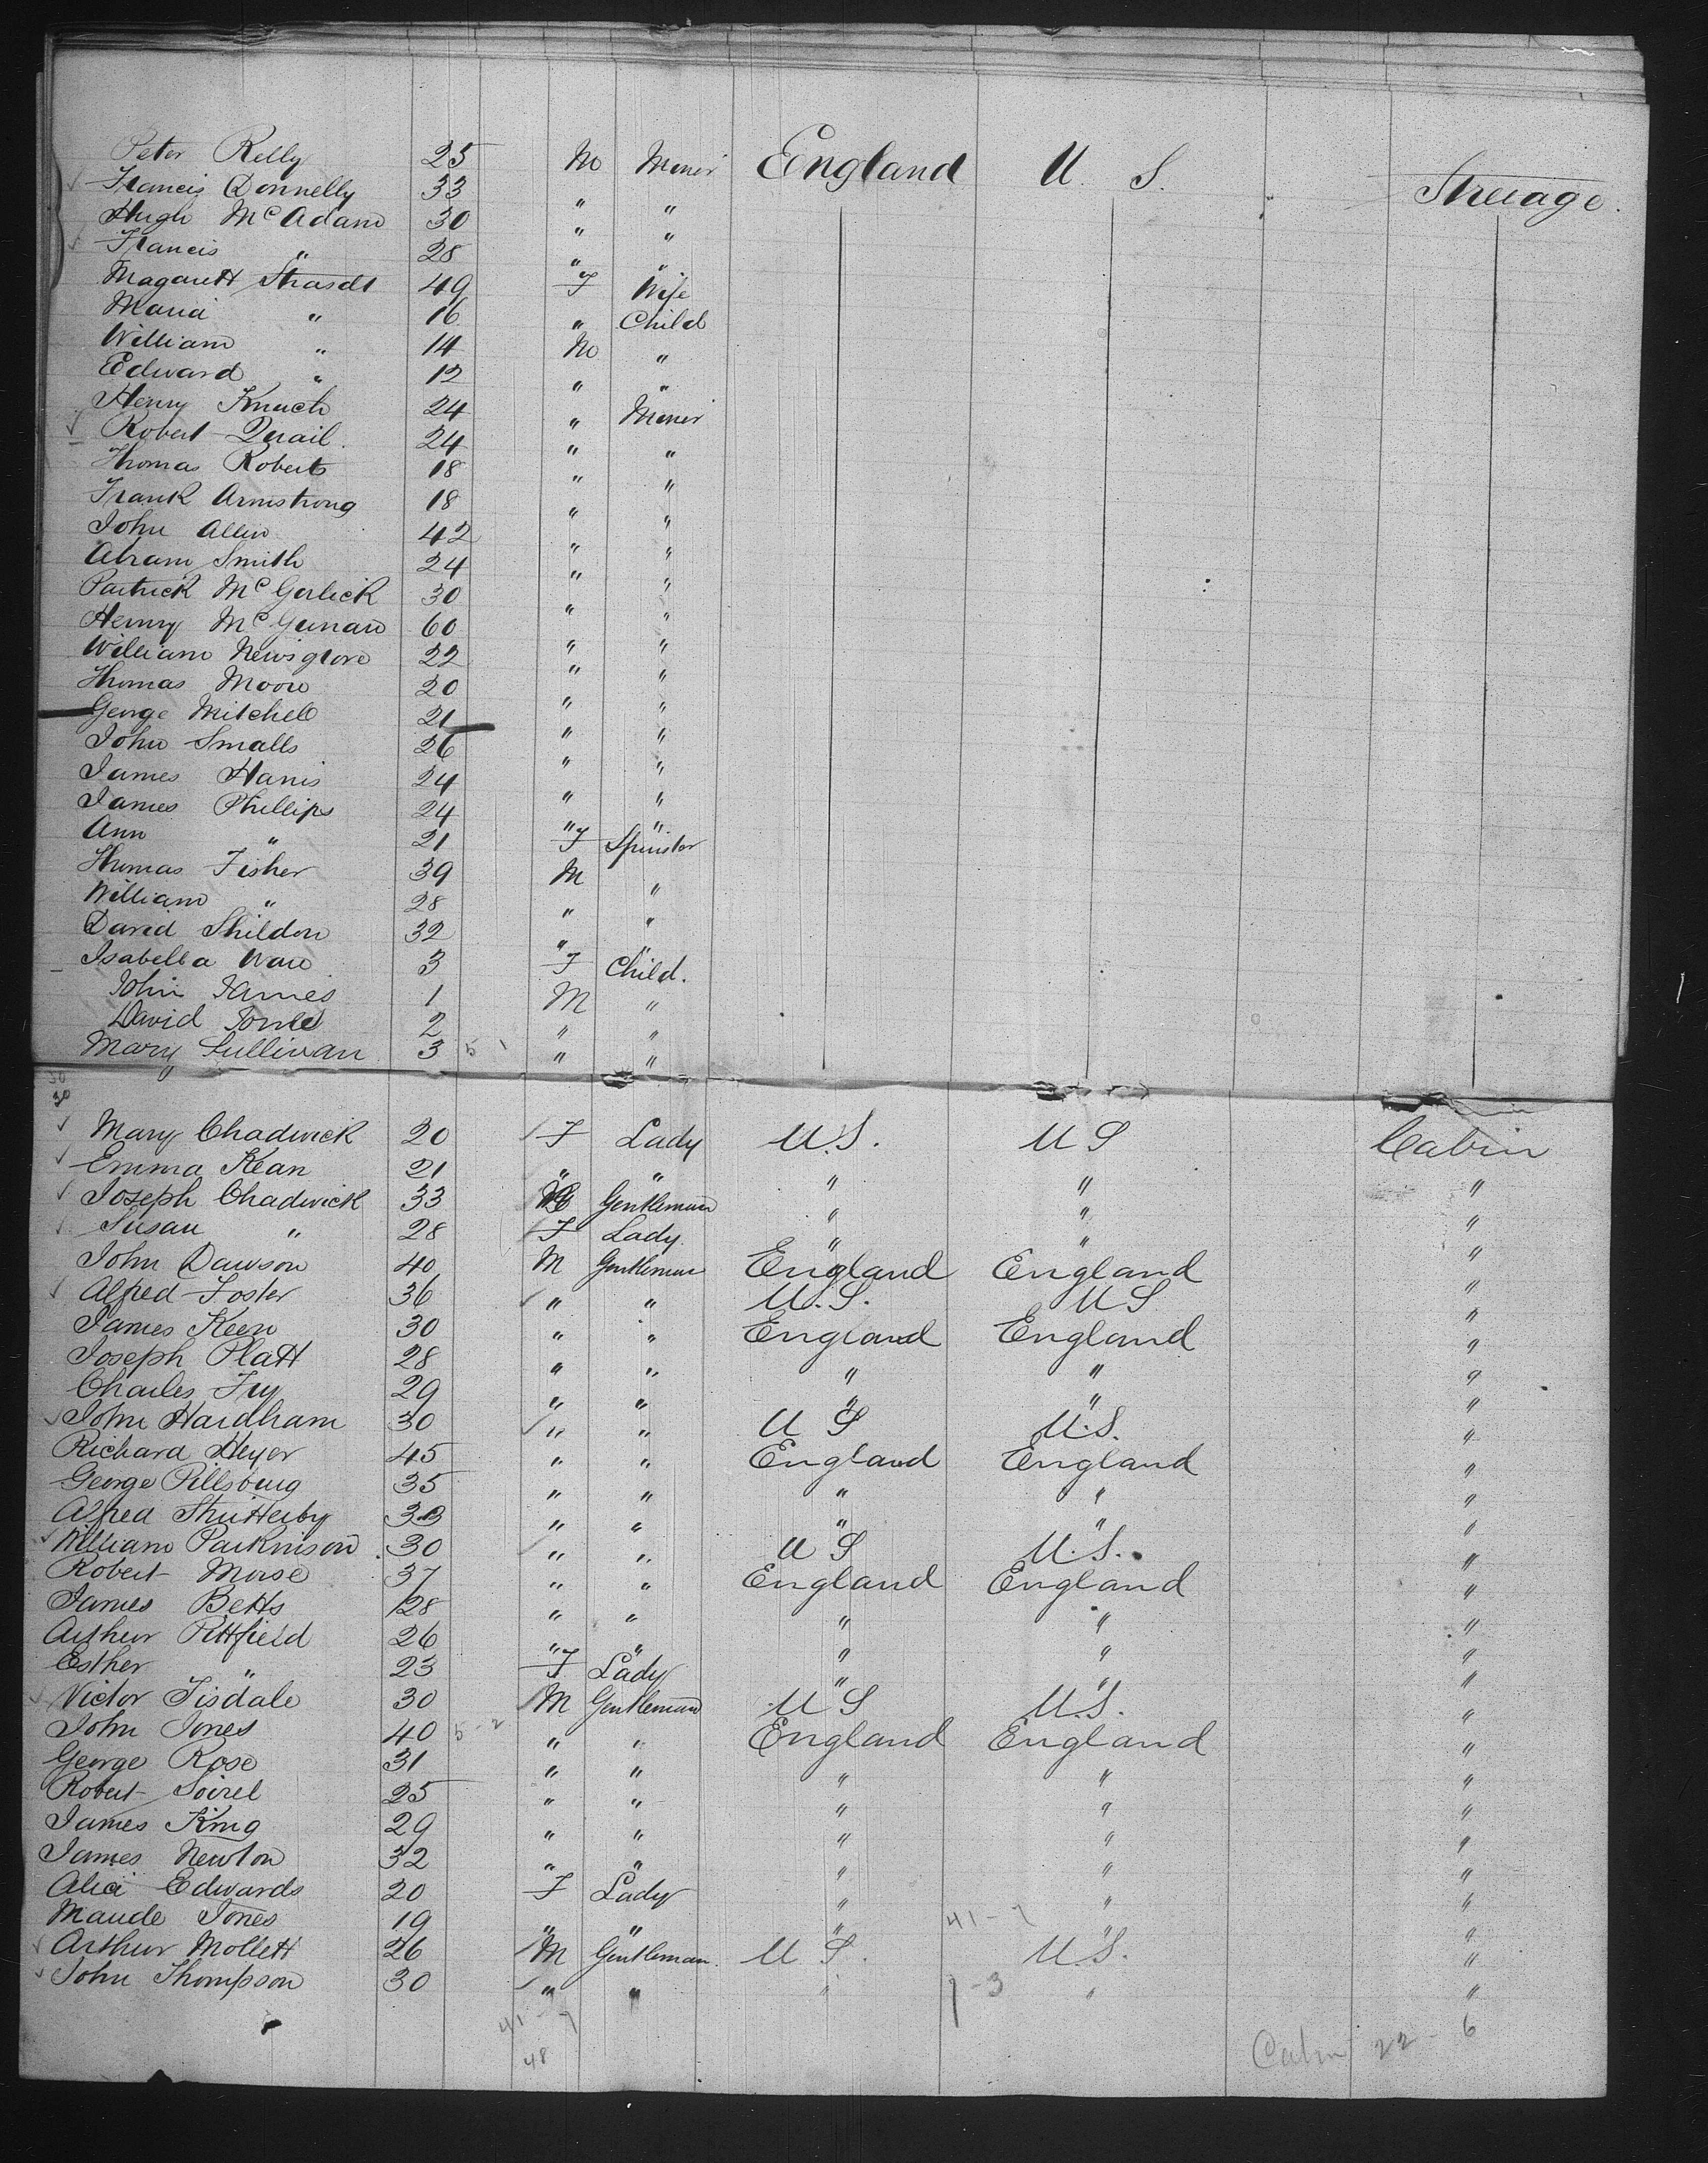 Peter Kelly 25 M Miner England U.S. Steerage.
Francis Donnelly 33 " "
Hugh McAdam 30 " "
Francis " 28 " "
Magarett 49 F Wife
Maria " 16 " Child
William " 14 M "
Edward " 12 " "
Henry 24 " Miner
Robert Quail. 24 " "
Thomas Roberts 18 " "
Frank Armstrong 18 " "
John Allen 42 " "
Abram Smith 24 " "
Patrick McGorlick 30 " "
Henry 60 " "
William Newsgrove 22 " "
Thomas Moore 20 " "
George Mitchell 21 " "
John Smalls 26 " "
James Harris 24 " "
James Phillips 24 " "
Ann " 21 F Spinster
Thomas Fisher 39 M "
William " 28 " "
David Shildon 32 " "
Isabella Ware 3 F Child.
John James 1 M "
David 2 " "
Mary Sullivan 3 5 1 " "
30
30
Mary Chadwick 20 F Lady U.S. U S Cabin
Emma Kean 21 " " " " "
Joseph Chadwick 33 M Gentleman " " "
Susan " 28 F Lady. " " "
John Dawson 40 M Gentleman England England "
Alfred Foster 36 " " U.S. U S "
James Keen 30 " " England England "
Joseph Platt 28 " " " " "
Charles Fry 29 " " " " "
John Hardham 30 " " U S U.S. "
Richard Heyer 45 " " England England "
George Pillsbury 35 " " " " "
Alfred 33 " " " " "
William Parkinson 30 " " U S U.S. "
Robert Morse 37 " " England England "
James Betts 28 " " " " "
Arthur Pittfield 26 " " " " "
Esther " 23 F Lady " " "
Victor Tisdale 30 M Gentleman U S U.S. "
John Jones 40 5-2 " " England England "
George Rose 31 " " " " "
Robert 25 " " " " "
James King 29 " " " " "
James Newton 32 " " " " "
Alice Edwards 20 F Lady " " "
Maude Jones 19 " " " 41-7 " "
Arthur Mollett 26 M Gentleman. U S. U.S. "
John Thompson 30 " " " 1-3 " "
41-7
48
Cabin 22-6